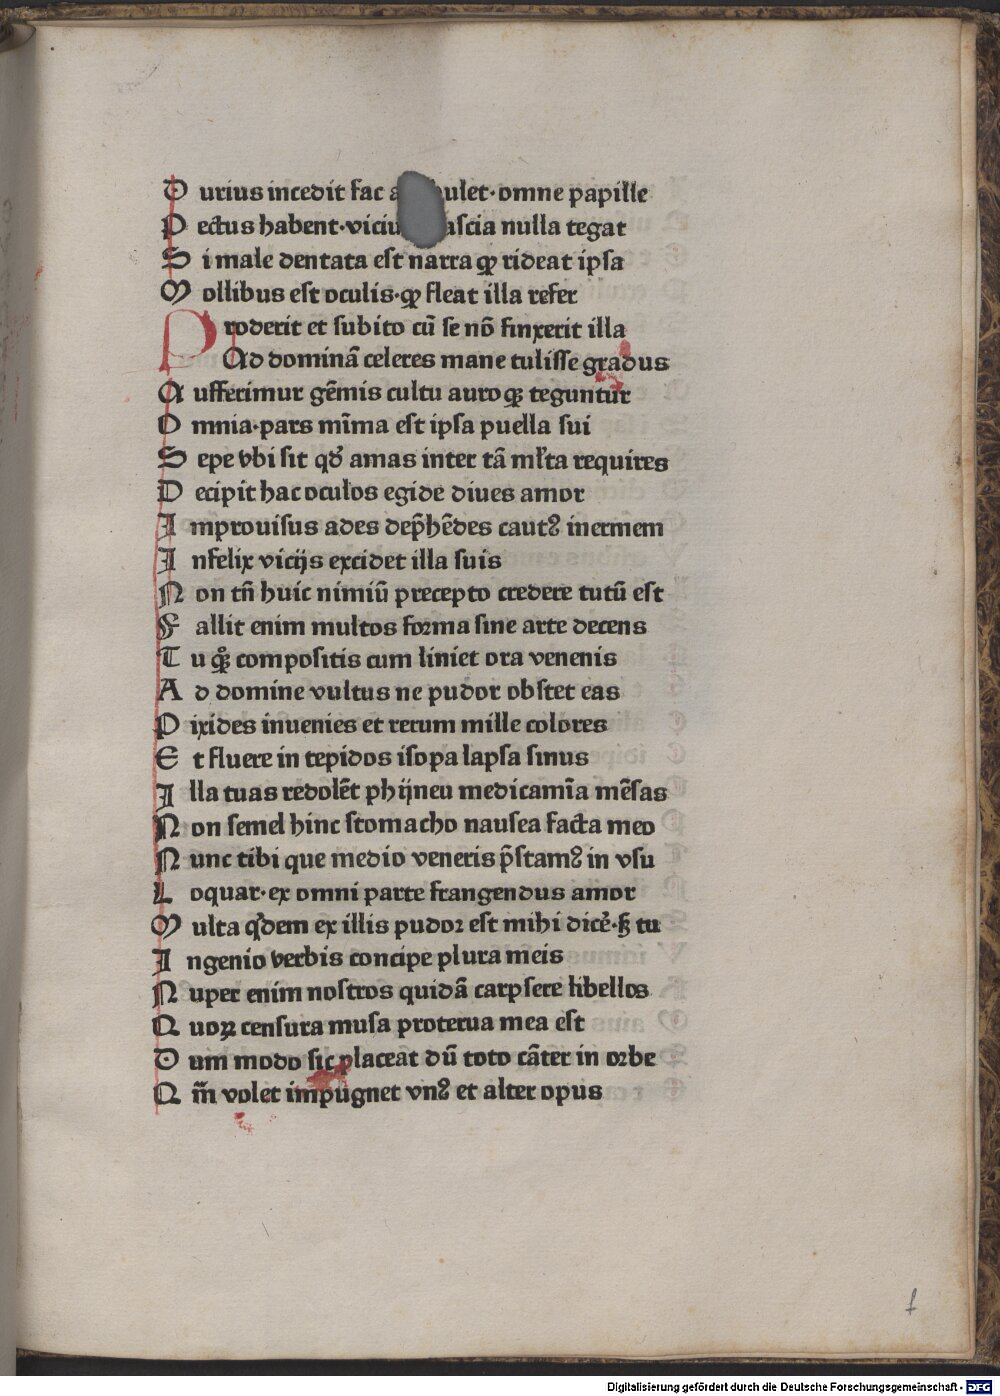 Durius incedit fac a ulet· omne papille
Pectus habent·viciu ascia nulla tegat
Si male dentata est narra qꝫ rideat ipsa
Mollibus est oculis·qꝫ fleat illa refer
Proderit et subito cū se nō finxerit illa
Ad dominā celeres mane tulisse gradus
Aufferimur gēmis cultu auroqꝫ teguntur
Omnia·pars mīma est ipsa puella sui
Sepe vbi sit qd̉ amas inter tā ml̉ta requires
Decipit hac oculos egide diues amor
Improuisus ades dep̄hēdes cautꝰ inermem
Infelix vicijs excidet illa suis
Non tn̄ huic nimiū precepto credere tutū est
Fallit enim multos forma sine arte decens
Tu qꝫͦ compositis cum liniet ora venenis
Ad domine vultus ne pudor obstet eas
Pixides inuenies et rerum mille colores
Et fluere in tepidos isopa lapsa sinus
Illa tuas redolēt phijneu medicamīa mēsas
Non semel hinc stomacho nausea facta meo
Nunc tibi que medio veneris p̄stamꝰ in vsu
Loquar·ex omni parte frangendus amor
Multa qͥdem ex illis pudoꝛ est mihi dicē·sꝫ tu
Ingenio verbis concipe plura meis
Nuper enim nostros quidā carpsere libellos
Quoꝝ censura musa proterua mea est
Dum modo sic placeat dū toto cāter in orbe
Qm̄ volet impugnet vnꝰ et alter opus
1
Digitalisierung gefördert durch die Deutsche Forschungsgemeinschaft - DFG